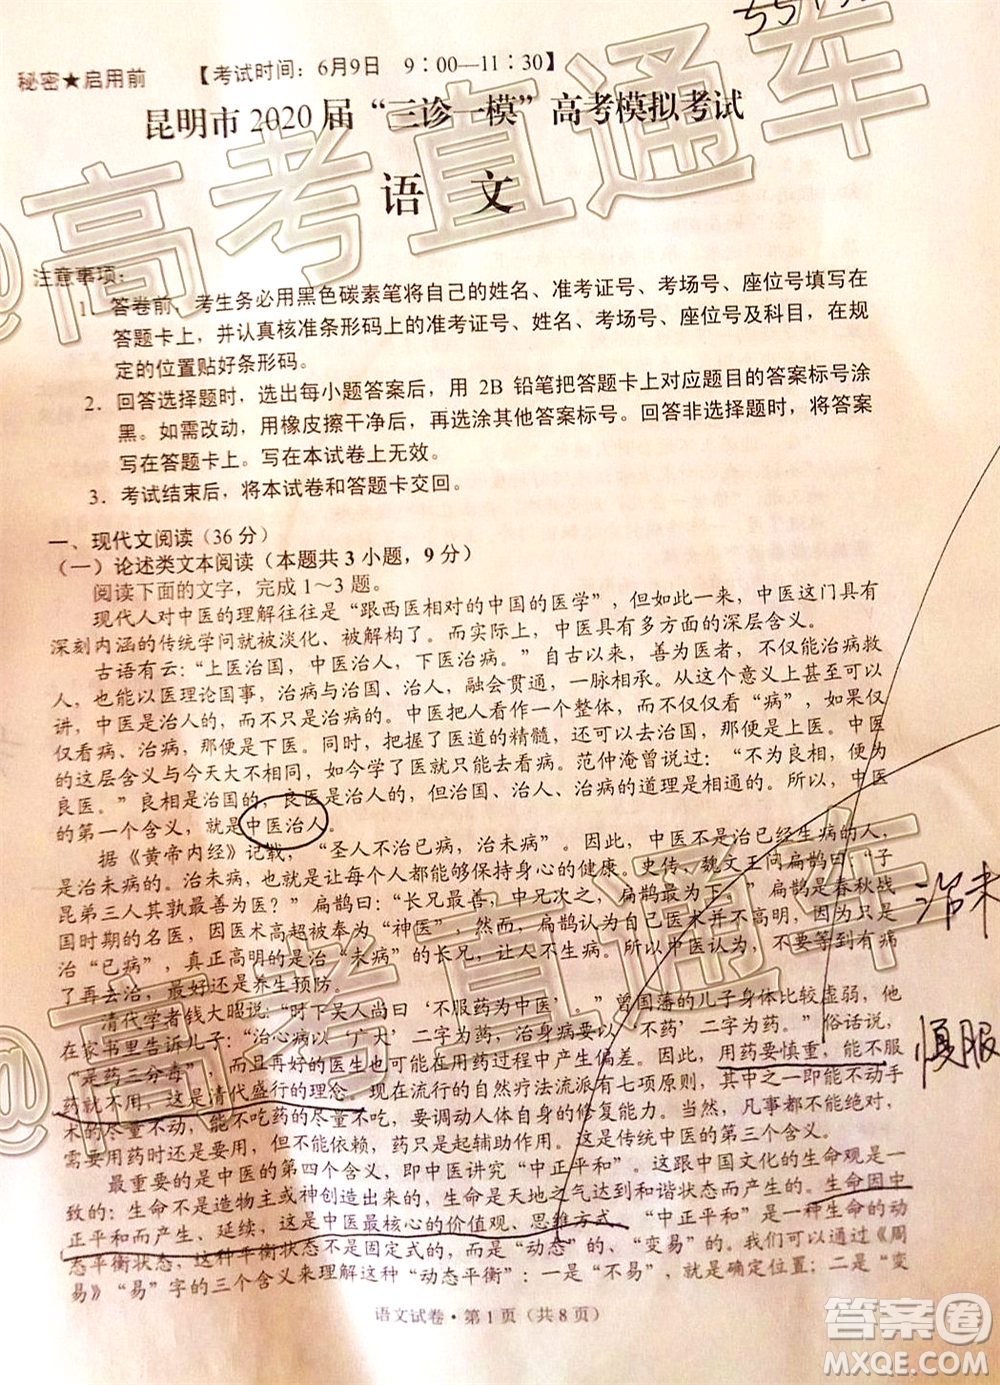 秘密★启用前 【考试时间：6月9日 9：00—11：30】
昆明市2020届“三诊一模”高考模拟考试
语 文
注意事项：
1．答卷前，考生务必用黑色碳素笔将自己的姓名、准考证号、考场号、座位号填写在
答题卡上，并认真核准条形码上的准考证号、姓名、考场号、座位号及科目，在规
定的位置贴好条形码。
2．回答选择题时，选出每小题答案后，用 2B 铅笔把答题卡上对应题目的答案标号涂
黑。如需改动，用橡皮擦干净后，再选涂其他答案标号。回答非选择题时，将答案
写在答题卡上。写在本试卷上无效。
3．考试结束后，将本试卷和答题卡交回。
一、现代文阅读（36 分）
（一）论述类文本阅读（本题共 3 小题，9 分）
阅读下面的文字，完成 1～3 题。
现代人对中医的理解往往是“跟西医相对的中国的医学”，但如此一来，中医这门具有
深刻内涵的传统学问就被淡化、被解构了。而实际上，中医具有多方面的深层含义。
古语有云：“上医治国，中医治人，下医治病。”自古以来，善为医者，不仅能治病救
人，也能以医理论国事，治病与治国、治人，融会贯通，一脉相承。从这个意义上
讲，中医是治人的，而不只是治病的。中医把人看作一个整体，而不仅仅看“病”，如
仅看病、治病，那便是下医。同时，把握了医道的精髓，还可以去治国，那便是上医。中医
的这层含义与今天大不相同，如今学了医只能去看病。范仲淹曾说过：“不为良相，便为
良医。”良相是治国的，良医是治人的，但治国、治人、治病的道理是相通的。所以，中医
的第一个含义，就是中医治人。
据《黄帝内经》记载，“圣人不治已病，治未病”。因此，中医不是治已经生病的人，而
是治未病。治未病，就是让每个人都能够保持身心的健康。史传，魏文王问扁鹊曰：“子
昆弟三人其孰最善为医？”扁鹊曰：“长兄最善，中兄次之，扁鹊最为下。”扁鹊是春秋战
国时期的名医，因医术高超被奉为“神医”，然而，扁鹊认为自己医术并不高明，只会
治“已病”，真正高明的是治“未病”的长兄，让人不生病。所以中医认为，不要等到有病
了再去治，最好还是养生预防。
清代学者钱大昭说：“时下吴人尚曰‘不服药为中医’。”曾国藩的儿子身体比较虚弱，他
在家书里告诉儿子：“治心病以‘广大’二字为药，治身病要以‘不药’二字为药。”俗话说，
“是药三分毒”，而且再好的医生也可能在用药过程中产生偏差。因此，用药要慎重，能不服
药就不用，这是清代盛行的理念。现在流行的自然疗法流派有七项原则，其中之一即能不动手
术的尽量不动，能不吃药的尽量不吃，要调动人体自身的修复能力。当然，凡事都不能绝对，
需要的还是要用，但不能依赖，药只是起辅助作用。这是传统中医的第三个含义。
最重要的是中医的第四个含义，即中医讲究“中正平和”。这跟中国文化的生命观是一
致的：生命不是造物主或神创造出来的，生命是天地之气达到和谐状态而产生的。生命因中
正平和而产生、延续，这是中医最核心的价值观、思维方式。“中正平和”是一种生命的动
态平衡状态，这种平衡状态不是固定式的，而是“动态”的、“变易”的。我们可以通过《周
易》“易”字的三个含义来理解这种“动态平衡”：一是“不易”，就是确定位置；二是“变
语文试卷·第1页（共8页）
治未
慎服
@高考直通车
@高考直通车
答案圈
MXQE.COM